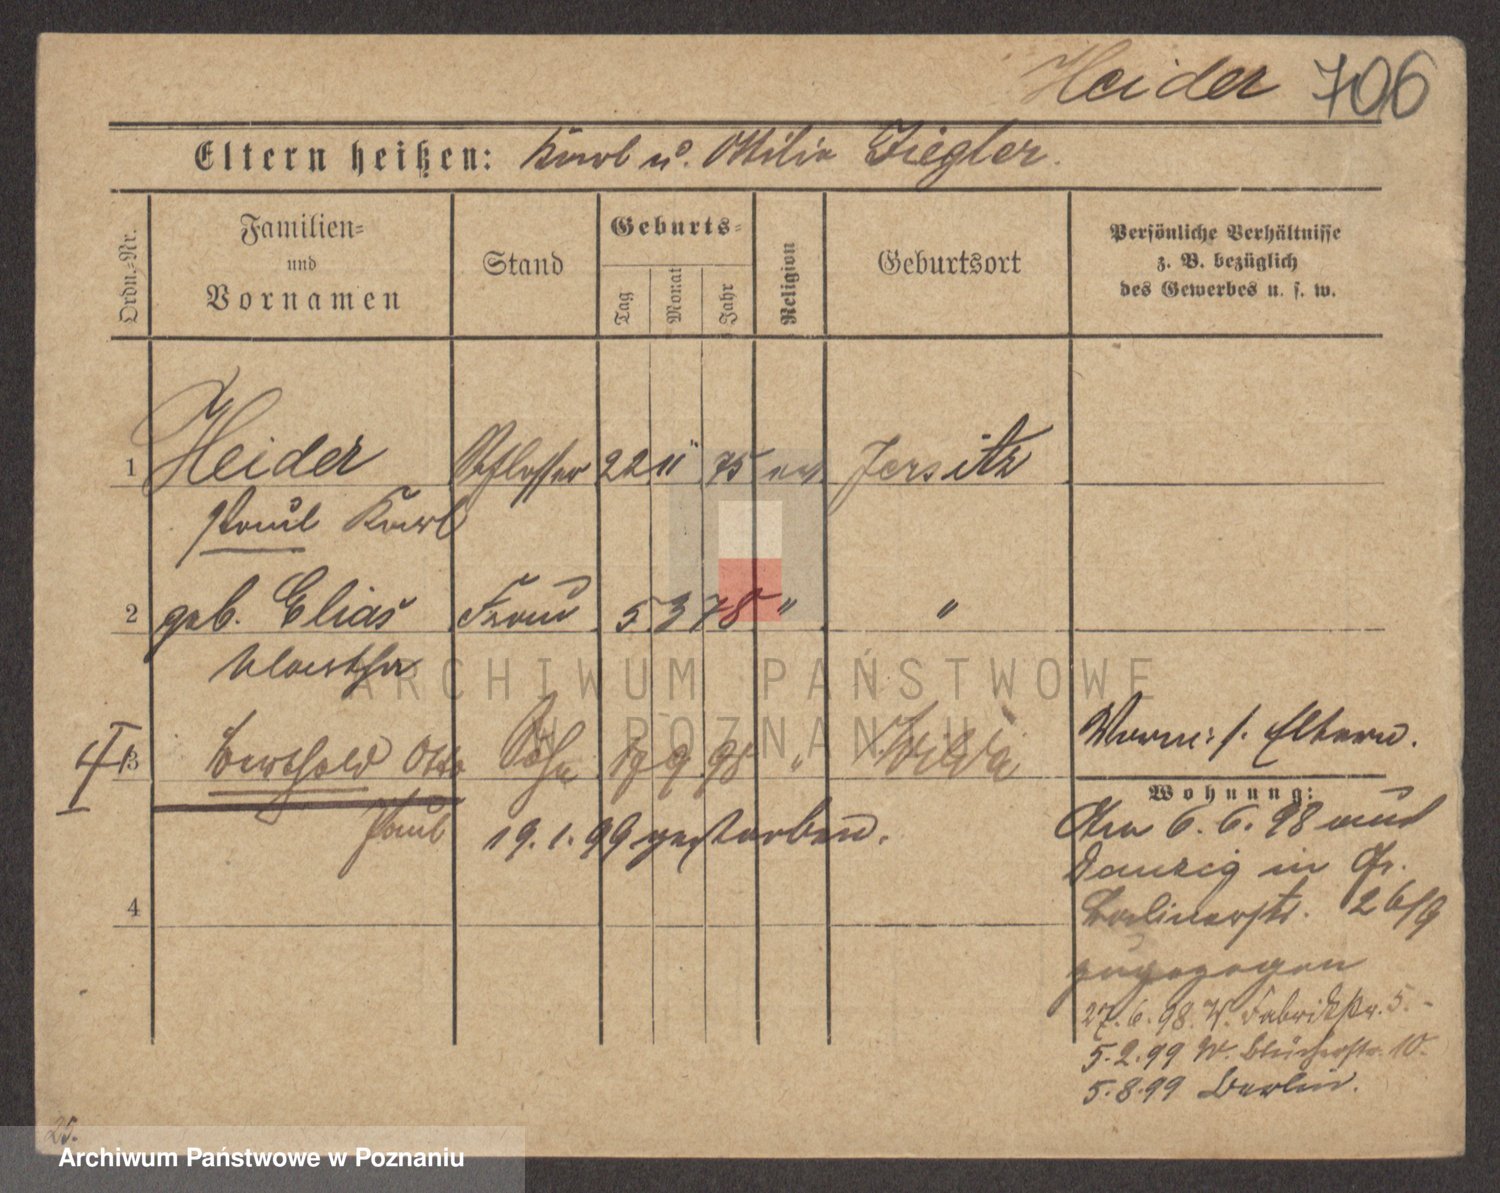 Heider 706
Eltern heißen: Karl u. Ottilie Ziegler.
Ordn.-Nr.
Familien-
und
Vornamen
Stand
Geburts-
Tag
Monat
Jahr
Religion
Geburtsort
Persönliche Verhältnisse
z. B. bezüglich
des Gewerbes u. s. w.
1 Heider Schlosser 22 11 75 ev Jersitz
Paul Karl
2 geb. Elias Frau 5 3 78 " "
Martha
3 Berthold Otto Sohn 17 9 98 " Wilda
Paul 19.1.99 gestorben.
4
Eltern.
Wohnung:
Am 6.6.98 aus
Danzig in Gr.
Berlinerstr. 26/9
zugezogen
27.6.98. W. Fabrikstr. 5.
5.2.99 W. Blücherstr. 10.
5.8.99 Berlin.
25.
ARCHIWUM PAŃSTWOWE
W POZNANIU
Archiwum Państwowe w Poznaniu